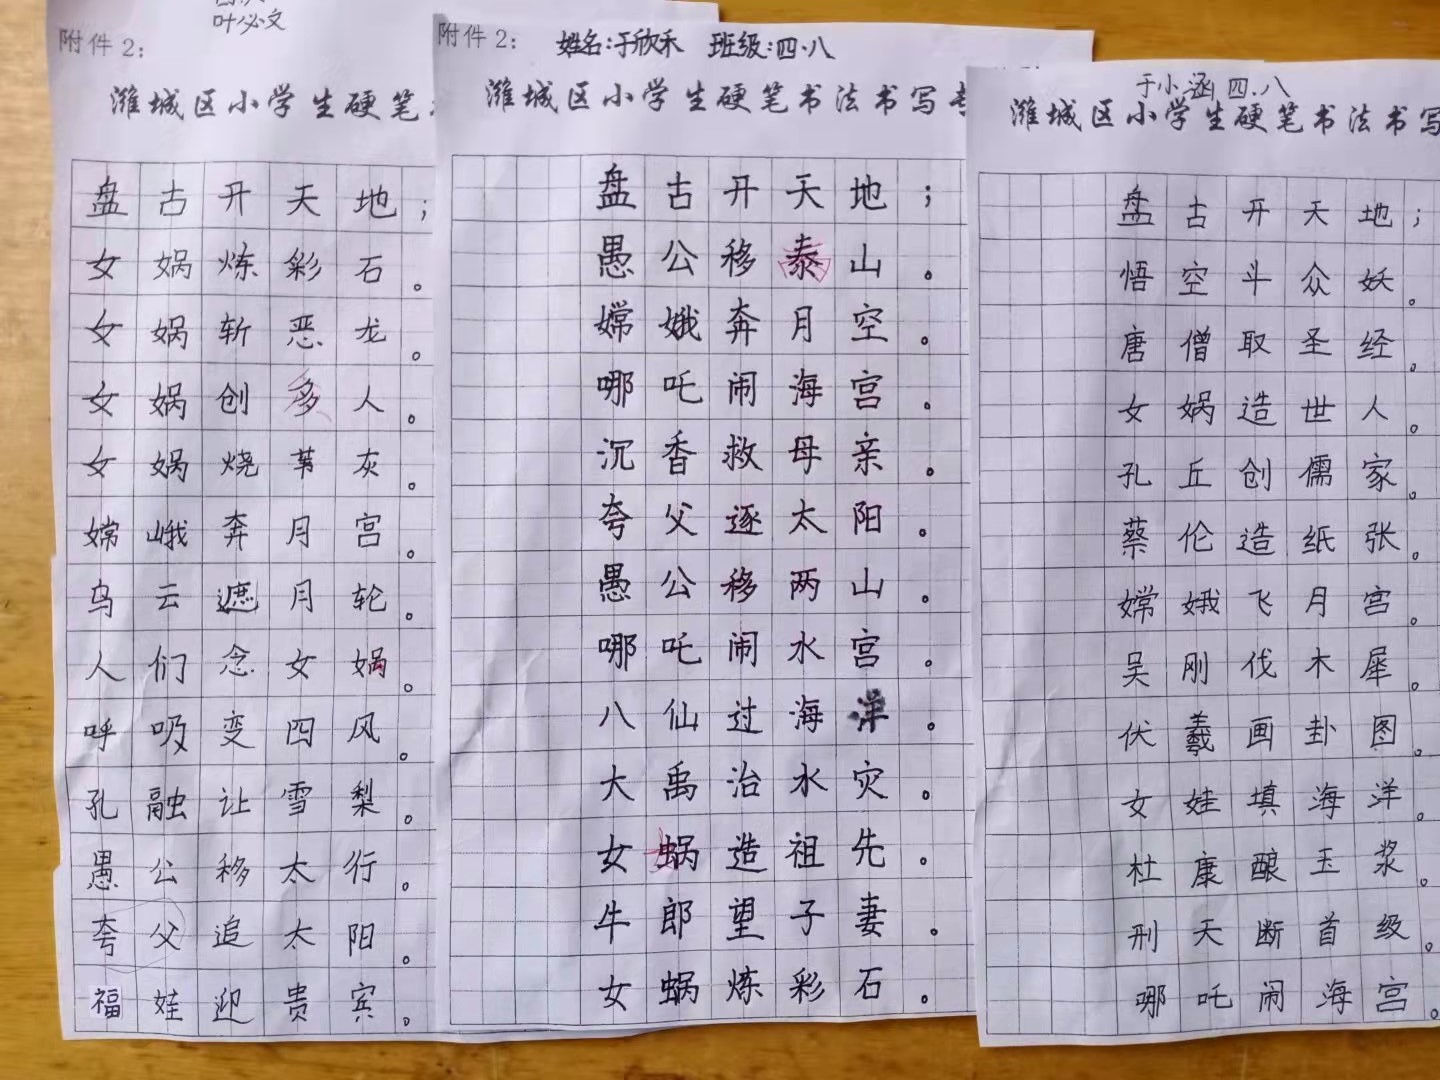 叶必文
附件2：
潍城区小学生硬笔
盘古开天地；
女娲炼彩石。
女娲斩恶龙。
女娲创多人。
女娲烧苇灰。
嫦峨奔月宫。
乌云遮月轮。
人们念女娲。
呼吸变四风。
孔融让雪梨。
愚公移太行。
夸父追太阳。
福娃迎贵宾。
附件2：
姓名：于欣禾 班级：四.八
潍城区小学生硬笔书法书写专
盘古开天地；
愚公移泰山。
嫦娥奔月空。
哪吒闹海宫。
沉香救母亲。
夸父逐太阳。
愚公移两山。
哪吒闹水宫。
八仙过海洋。
大禹治水灾。
女蜗造祖先。
牛郎望子妻。
女蜗炼彩石。
于小涵 四.八
潍城区小学生硬笔书法书写
盘古开天地；
悟空斗众妖。
唐僧取圣经。
女娲造世人。
孔丘创儒家。
蔡伦造纸张。
嫦娥飞月宫。
吴刚伐木犀。
伏羲画卦图。
女娃填海洋。
杜康酿玉浆。
刑天断首级。
哪吒闹海宫。